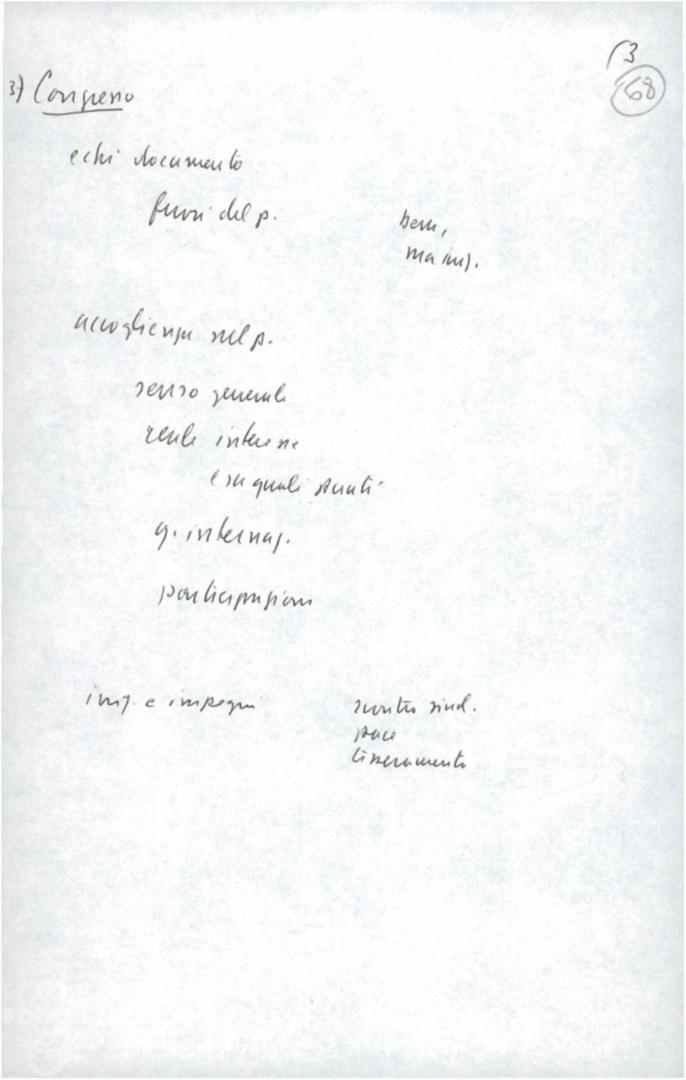 13
68
3) Congresso
echi documento
fuori del p. bene,
ma ins.
accoglienza nel p.
senso generale
reale interesse
e su quali punti
q. internaz.
partecipazione
iniz. e impegni scontro sind.
pace
tesseramento